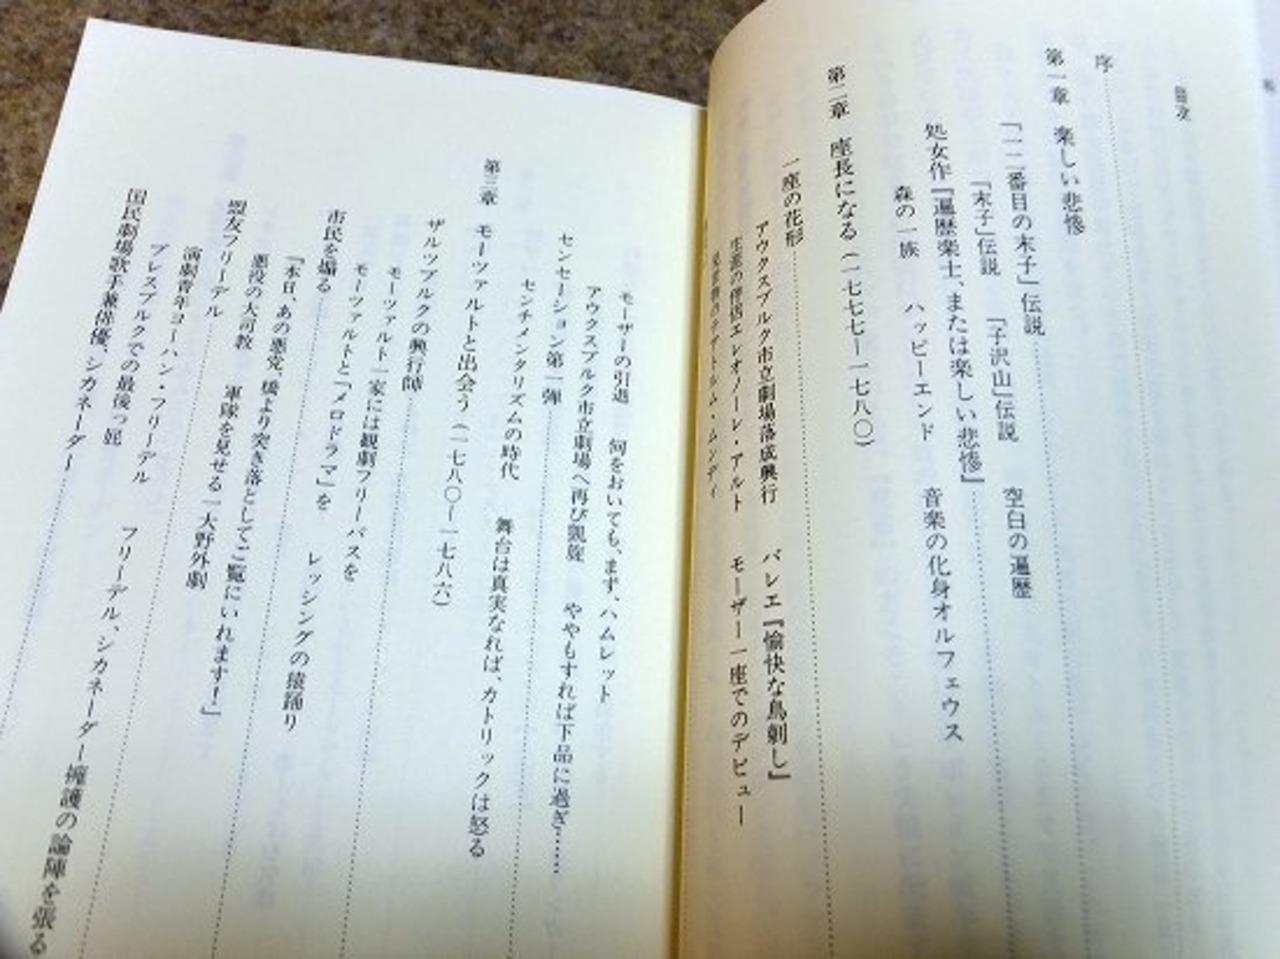 目次
序
第一章 楽しい悲惨
「一二番目の末子」伝説
「末子」伝説 「子沢山」伝説 空白の遍歴
処女作『遍歴楽士、または楽しい悲惨』
森の一族 ハッピーエンド 音楽の化身オルフェウス
第二章 座長になる(一七七七―一七八〇)
一座の花形
アウクスブルク市立劇場落成興行 バレエ『愉快な鳥刺し』
生涯の伴侶エレオノーレ・アルト モーザー一座でのデビュー
見世物のテアトルム・ムンディ
モーザーの引退 何をおいても、まず、ハムレット
アウクスブルク市立劇場へ再び凱旋 ややもすれば下品に過ぎ……
センセーション第一弾
センチメンタリズムの時代 舞台は真実なれば、カトリックは怒る
第三章 モーツァルトと出会う(一七八〇―一七八六)
ザルツブルクの興行師
モーツァルト一家には観劇フリーパスを
モーツァルトと「メロドラマ」を レッシングの猿踊り
市民を煽る
「本日、あの悪党、橋より突き落としてご覧にいれます!」
悪役の大司教 軍隊を見せる一大野外劇
盟友フリーデル
演劇青年ヨーハン・フリーデル
プレスブルクでの最後っ屁 フリーデル、シカネーダー擁護の論陣を張る
国民劇場歌手兼俳優、シカネーダー